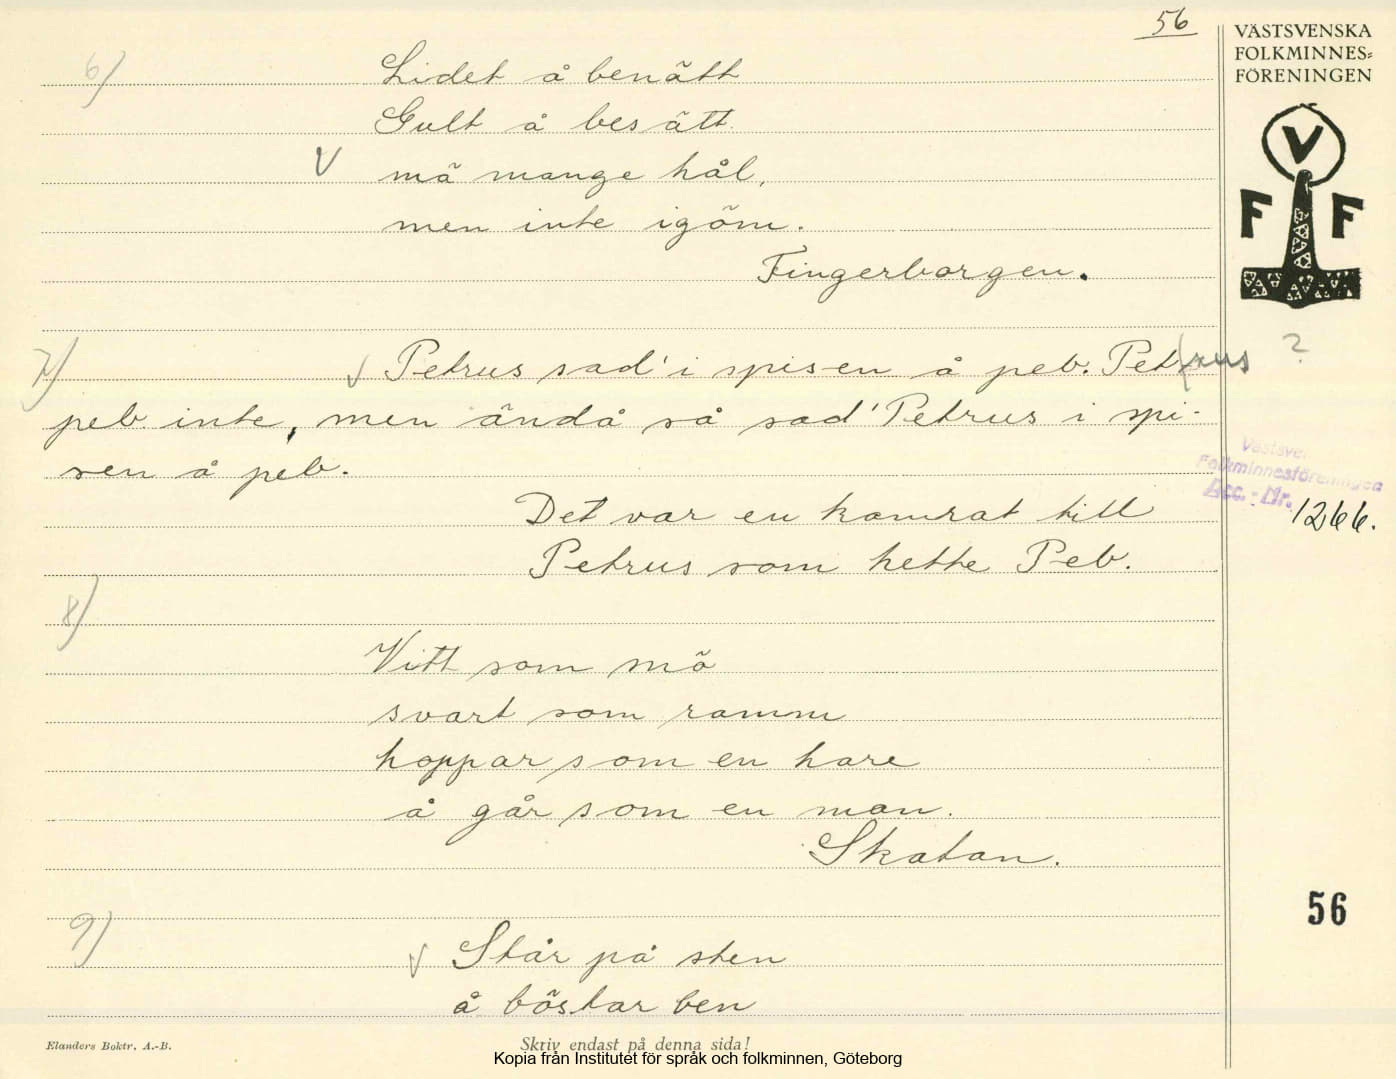 56
VÄSTSVENSKA
FOLKMINNES-
FÖRENINGEN
V
F F
6)
Lidet å benätt
Gult å besätt.
V mä mange hål,
men inte igöm.
Fingerborgen.
7) V Petrus sad' i spisen å peb. Petrus ?
peb inte, men ändå så sad' Petrus i spi-
sen å peb.
Västsve.
Folkminnesföreningen
Acc. - Nr. 1266.
Det var en kamrat till
Petrus som hette Peb.
8)
Vitt som mõ
svart som ramm
hoppar som en hare
å går som en man.
Skatan.
56
9)
V Står på sten
å böstar ben
Elanders Boktr. A.-B.
Skriv endast på denna sida!
Kopia från Institutet för språk och folkminnen, Göteborg